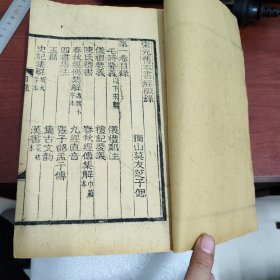 宋元舊本書經眼錄
獨山莫友芝子偲
第一卷目錄
毛詩要義
儀禮鄭注
儀禮要義
禮記要義
陳氏禮書
春秋經傳集解
春秋經傳集解
九經直音
四書集注
張子韶孟子傳
玉篇
集古文韻
史記集解
漢書